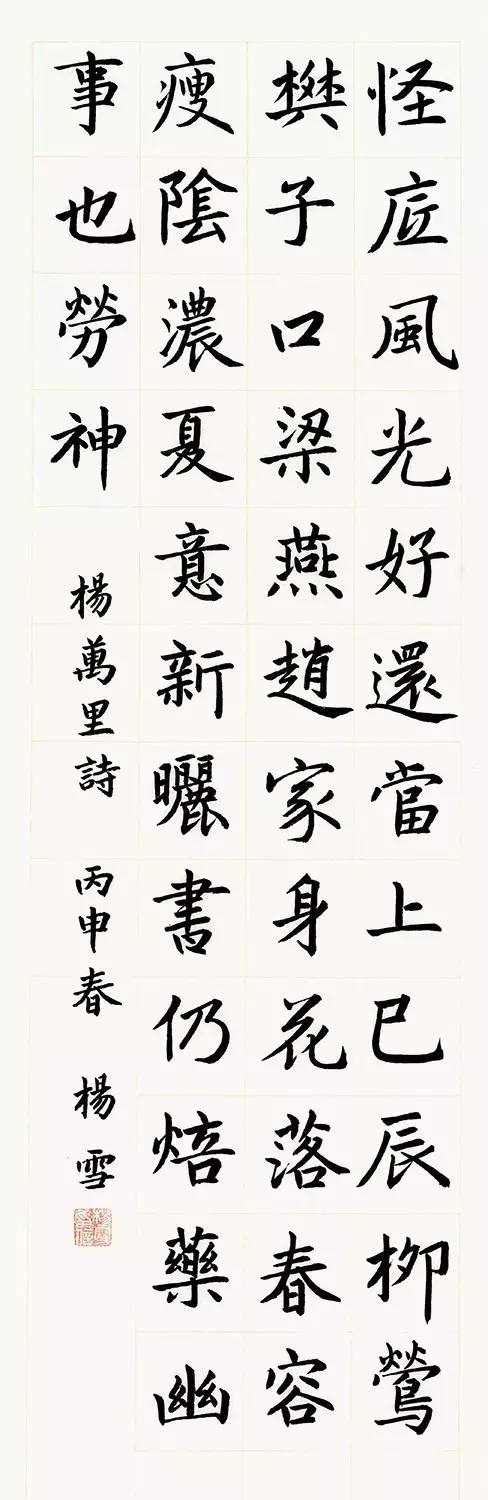 怪底風光好還當上巳辰柳鶯
樊子口梁燕趙家身花落春容
瘦陰濃夏意新曬書仍焙藥幽
事也勞神
楊萬里詩 丙申春 楊雪